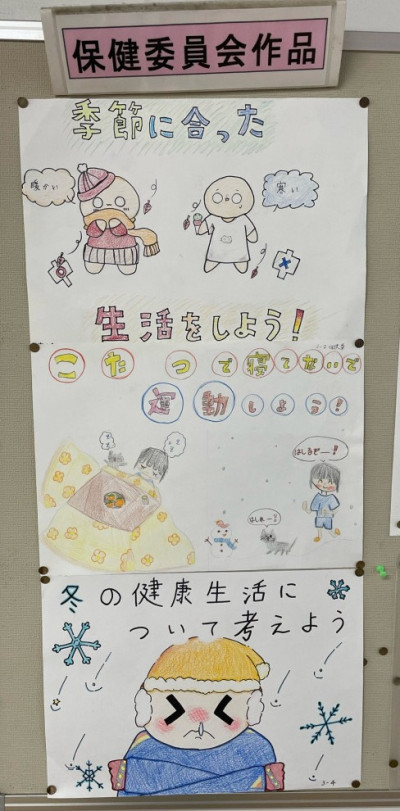 保健委員会作品
季節に合った
暖かい
寒い
生活をしよう!
こたつで寝てないで
運動しよう!
はしるぞー!
冬の健康生活に
ついて考えよう
2-4